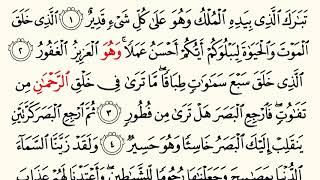 تَبَٰرَكَ ٱلَّذِي بِيَدِهِ ٱلۡمُلۡكُ وَهُوَ عَلَىٰ كُلِّ شَيۡءٖ قَدِيرٌ ١ ٱلَّذِي خَلَقَ
ٱلۡمَوۡتَ وَٱلۡحَيَوٰةَ لِيَبۡلُوَكُمۡ أَيُّكُمۡ أَحۡسَنُ عَمَلٗاۚ وَهُوَ ٱلۡعَزِيزُ ٱلۡغَفُورُ ٢
ٱلَّذِي خَلَقَ سَبۡعَ سَمَٰوَٰتٖ طِبَاقٗاۖ مَّا تَرَىٰ فِي خَلۡقِ ٱلرَّحۡمَٰنِ مِن
تَفَٰوُتٖۖ فَٱرۡجِعِ ٱلۡبَصَرَ هَلۡ تَرَىٰ مِن فُطُورٖ ٣ ثُمَّ ٱرۡجِعِ ٱلۡبَصَرَ كَرَّتَيۡنِ
يَنقَلِبۡ إِلَيۡكَ ٱلۡبَصَرُ خَاسِئٗا وَهُوَ حَسِيرٞ ٤ وَلَقَدۡ زَيَّنَّا ٱلسَّمَآءَ
ٱلدُّنۡيَا بِمَصَٰبِيحَ وَجَعَلۡنَٰهَا رُجُومٗا لِّلشَّيَٰطِينِۖ وَأَعۡتَدۡنَا لَهُمۡ عَذَابَ